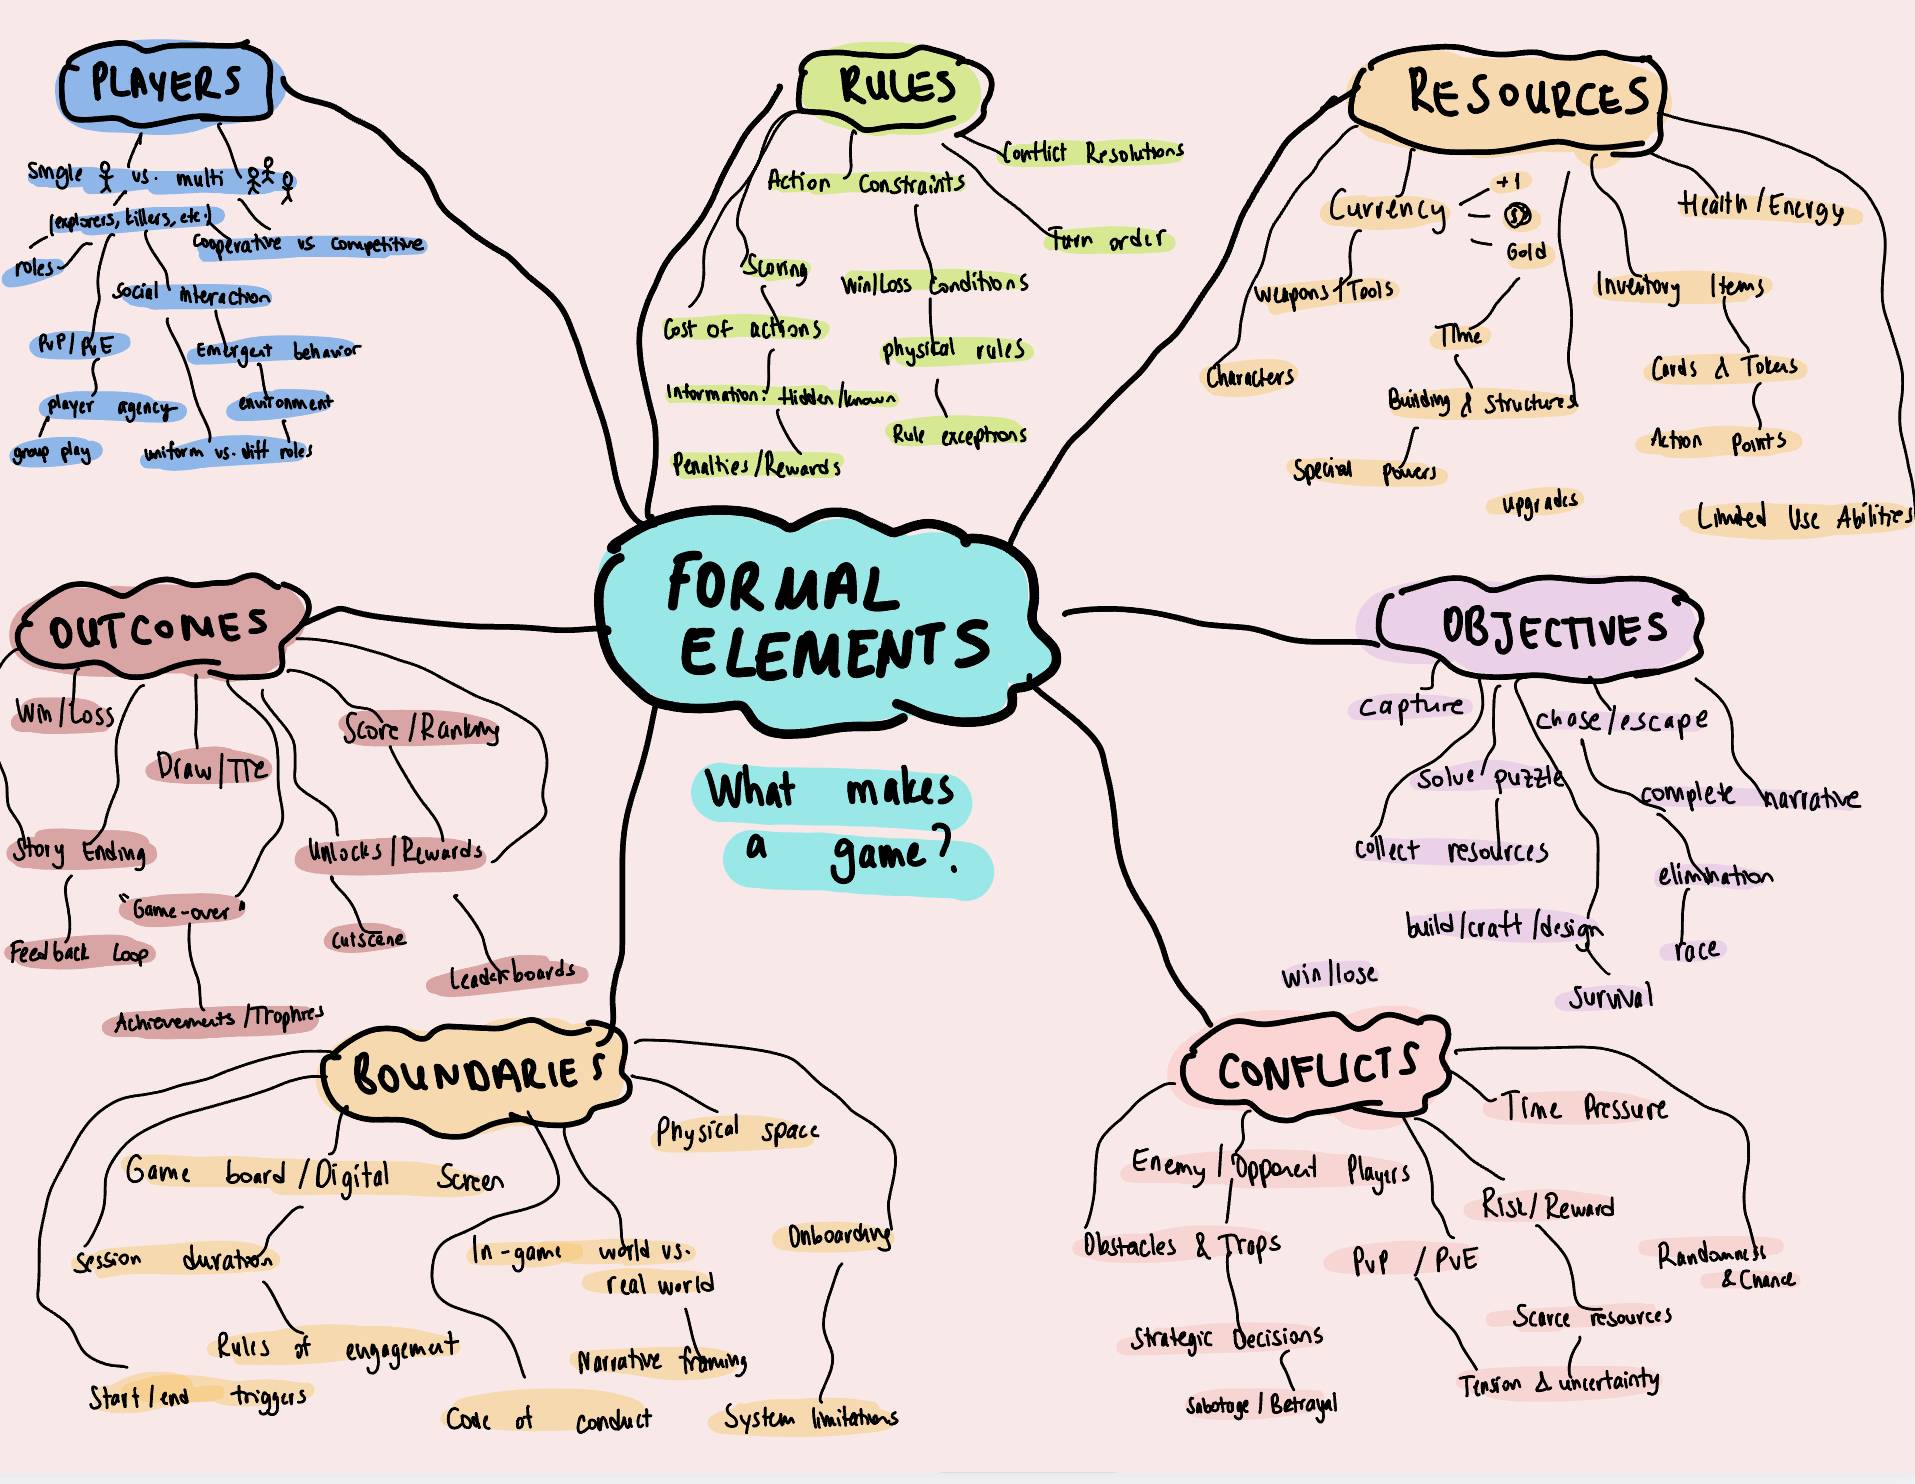 PLAYERS
Single vs. multi
(explorers, killers, etc.)
roles
cooperative vs competitive
social interaction
PvP/PvE
Emergent behavior
player agency
environment
group play
uniform vs. diff roles
RULES
Conflict Resolutions
Action Constraints
Turn order
Scoring
Win/Loss Conditions
Cost of actions
physical rules
Information: Hidden/known
Rule exceptions
Penalties/Rewards
RESOURCES
+1
Currency
$
Gold
Health/Energy
Weapons/Tools
Inventory Items
Time
Characters
Cards & Tokens
Building & Structures
Action Points
Special Powers
upgrades
Limited Use Abilities
FORMAL
ELEMENTS
What makes
a game?
OUTCOMES
Win/Loss
Score/Ranking
Draw/Tie
Story Ending
Unlocks/Rewards
"Game-over"
Feedback Loop
Cutscene
Leaderboards
Achievements/Trophies
OBJECTIVES
capture
chase/escape
solve puzzle
complete narrative
collect resources
elimination
build/craft/design
race
win/lose
survival
BOUNDARIES
Physical space
Game board/Digital Screen
Onboarding
Session duration
In-game world vs.
real world
Rules of engagement
Narrative framing
Start/end triggers
Code of conduct
System limitations
CONFLICTS
Time Pressure
Enemy/Opponent Players
Risk/Reward
Obstacles & Traps
PvP / PvE
Randomness
& Chance
Strategic Decisions
Scarce resources
Tension & uncertainty
Sabotage/Betrayal